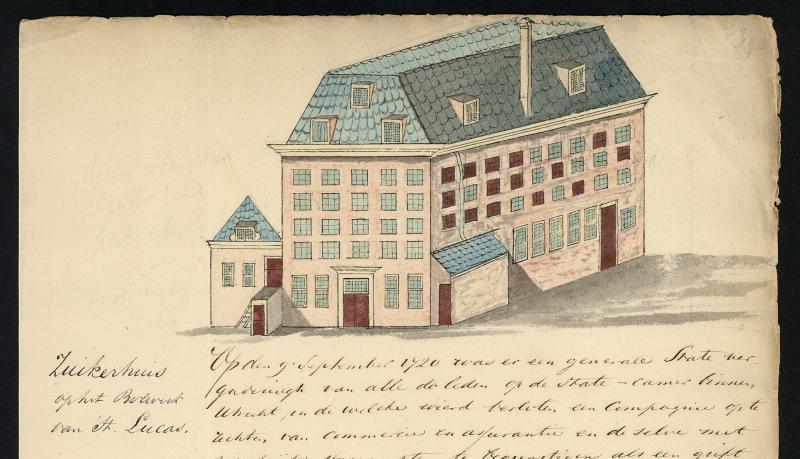 390
Zuikerhuis
op het Bolwerk
van St. Lucas.
Op den 9. September 1720 was er een generale State ver-
gaderingh van alle de leden op de State-camer binnen
Utrecht, in de welcke wierd besloten een Compagnie op te
rechten, van commercie en assurantie en de selve met
te begunstigen als een gift